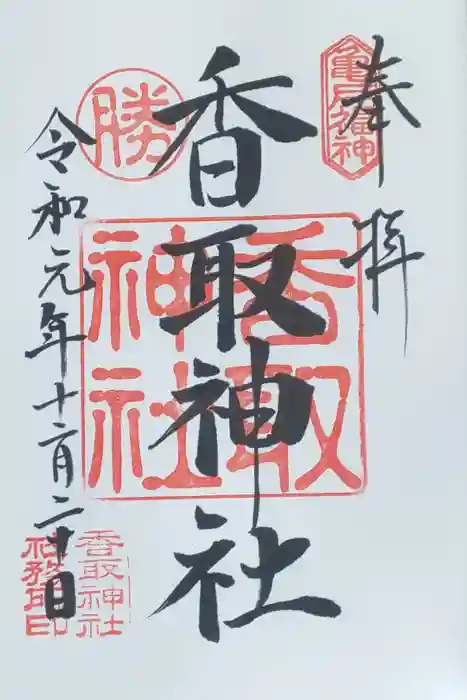 奉拝
亀戸福神
香取神社
香取
神社
勝
令和元年十二月二十日
香取神社
社務所印